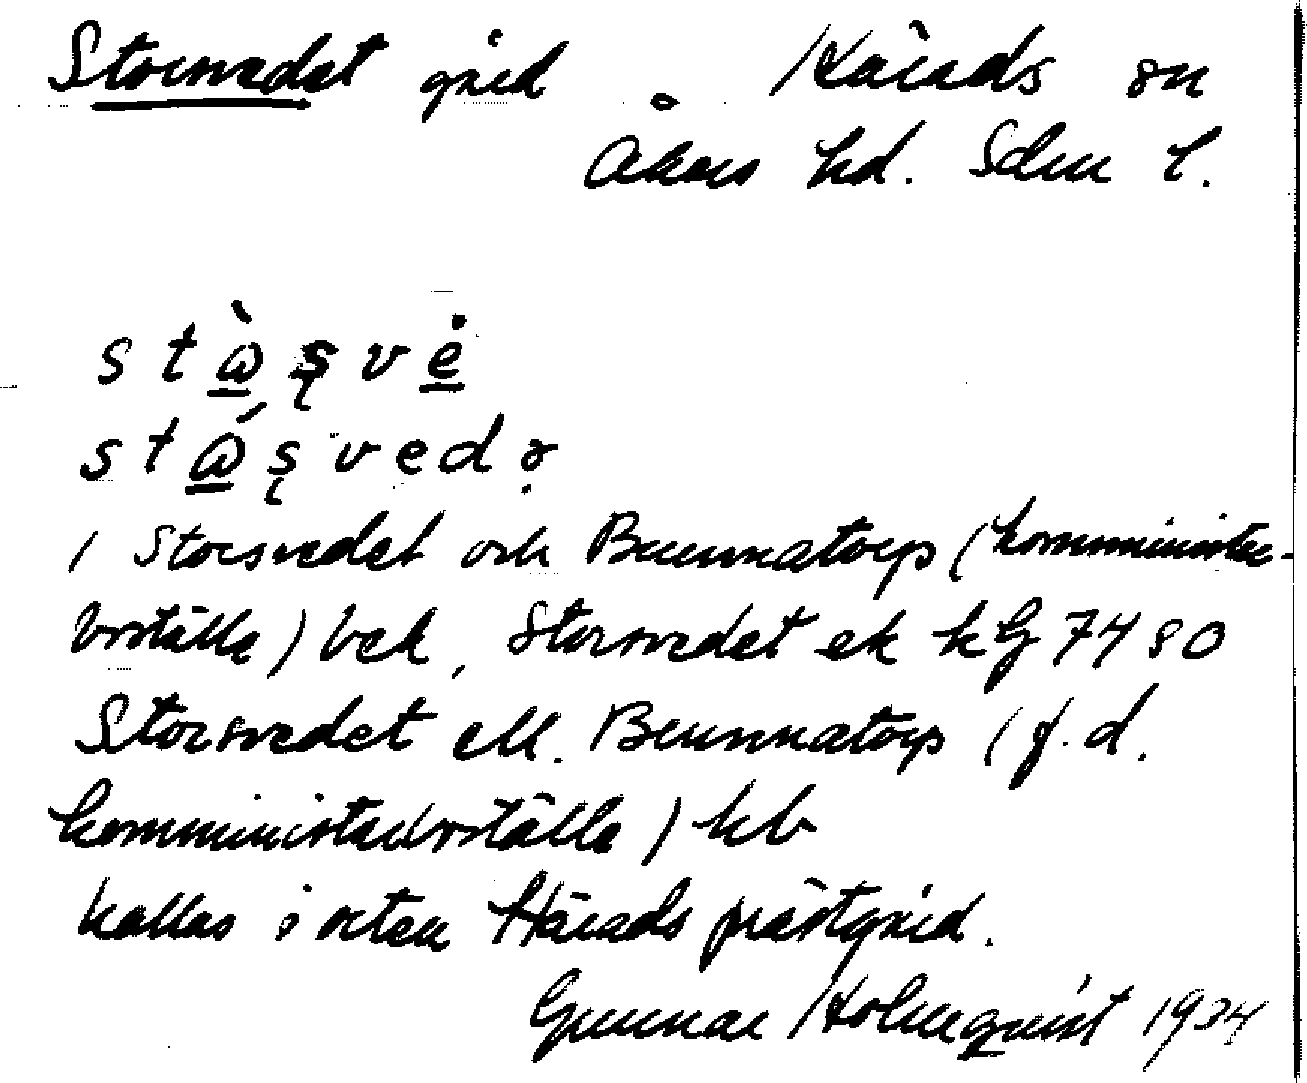 Storsvedet grd Härads sn
Åkers hd. Sdm l.
stɑ̀ʂvė
stɑ́ʂvedɂ
/ Storsvedet och Brunnatorp (komminister-
boställe) bek, Storsvedet ek KG 7480
Storsvedet ell. Brunnatorp (f.d.
komministerboställe) kb
kallas i orten Härads prästgård.
Gunnar Holmquist 1934